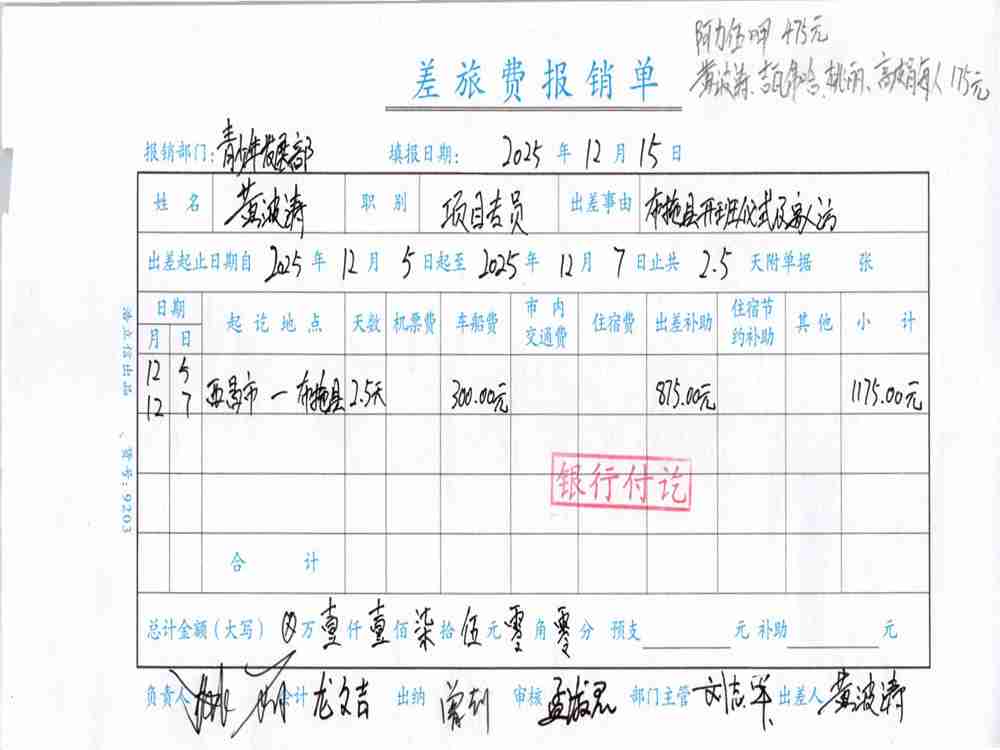 阿力伍呷 475元
黄波涛、吉瓦伟哈、姚丽、高娟每人175元
差旅费报销单
报销部门：青少年发展部 填报日期： 2025 年 12 月 15 日
姓名 黄波涛 职别 项目专员 出差事由 布拖县开班仪式及家人访
出差起止日期自 2025 年 12 月 5 日起至 2025 年 12 月 7 日止共 2.5 天附单据 张
日期 起讫地点 天数 机票费 车船费 市内交通费 住宿费 出差补助 住宿节约补助 其他 小计
月 日
12 5
12 7 西昌市 — 布拖县 2.5天 300.00元 875.00元 1175.00元
银行付讫
合计
总计金额（大写） ⊗万 壹仟 壹佰 柒拾 伍元 零角 零分 预支 元 补助 元
负责人 会计 龙文吉 出纳 曾钊 审核 部门主管 刘志华 出差人 黄波涛
货号：9203